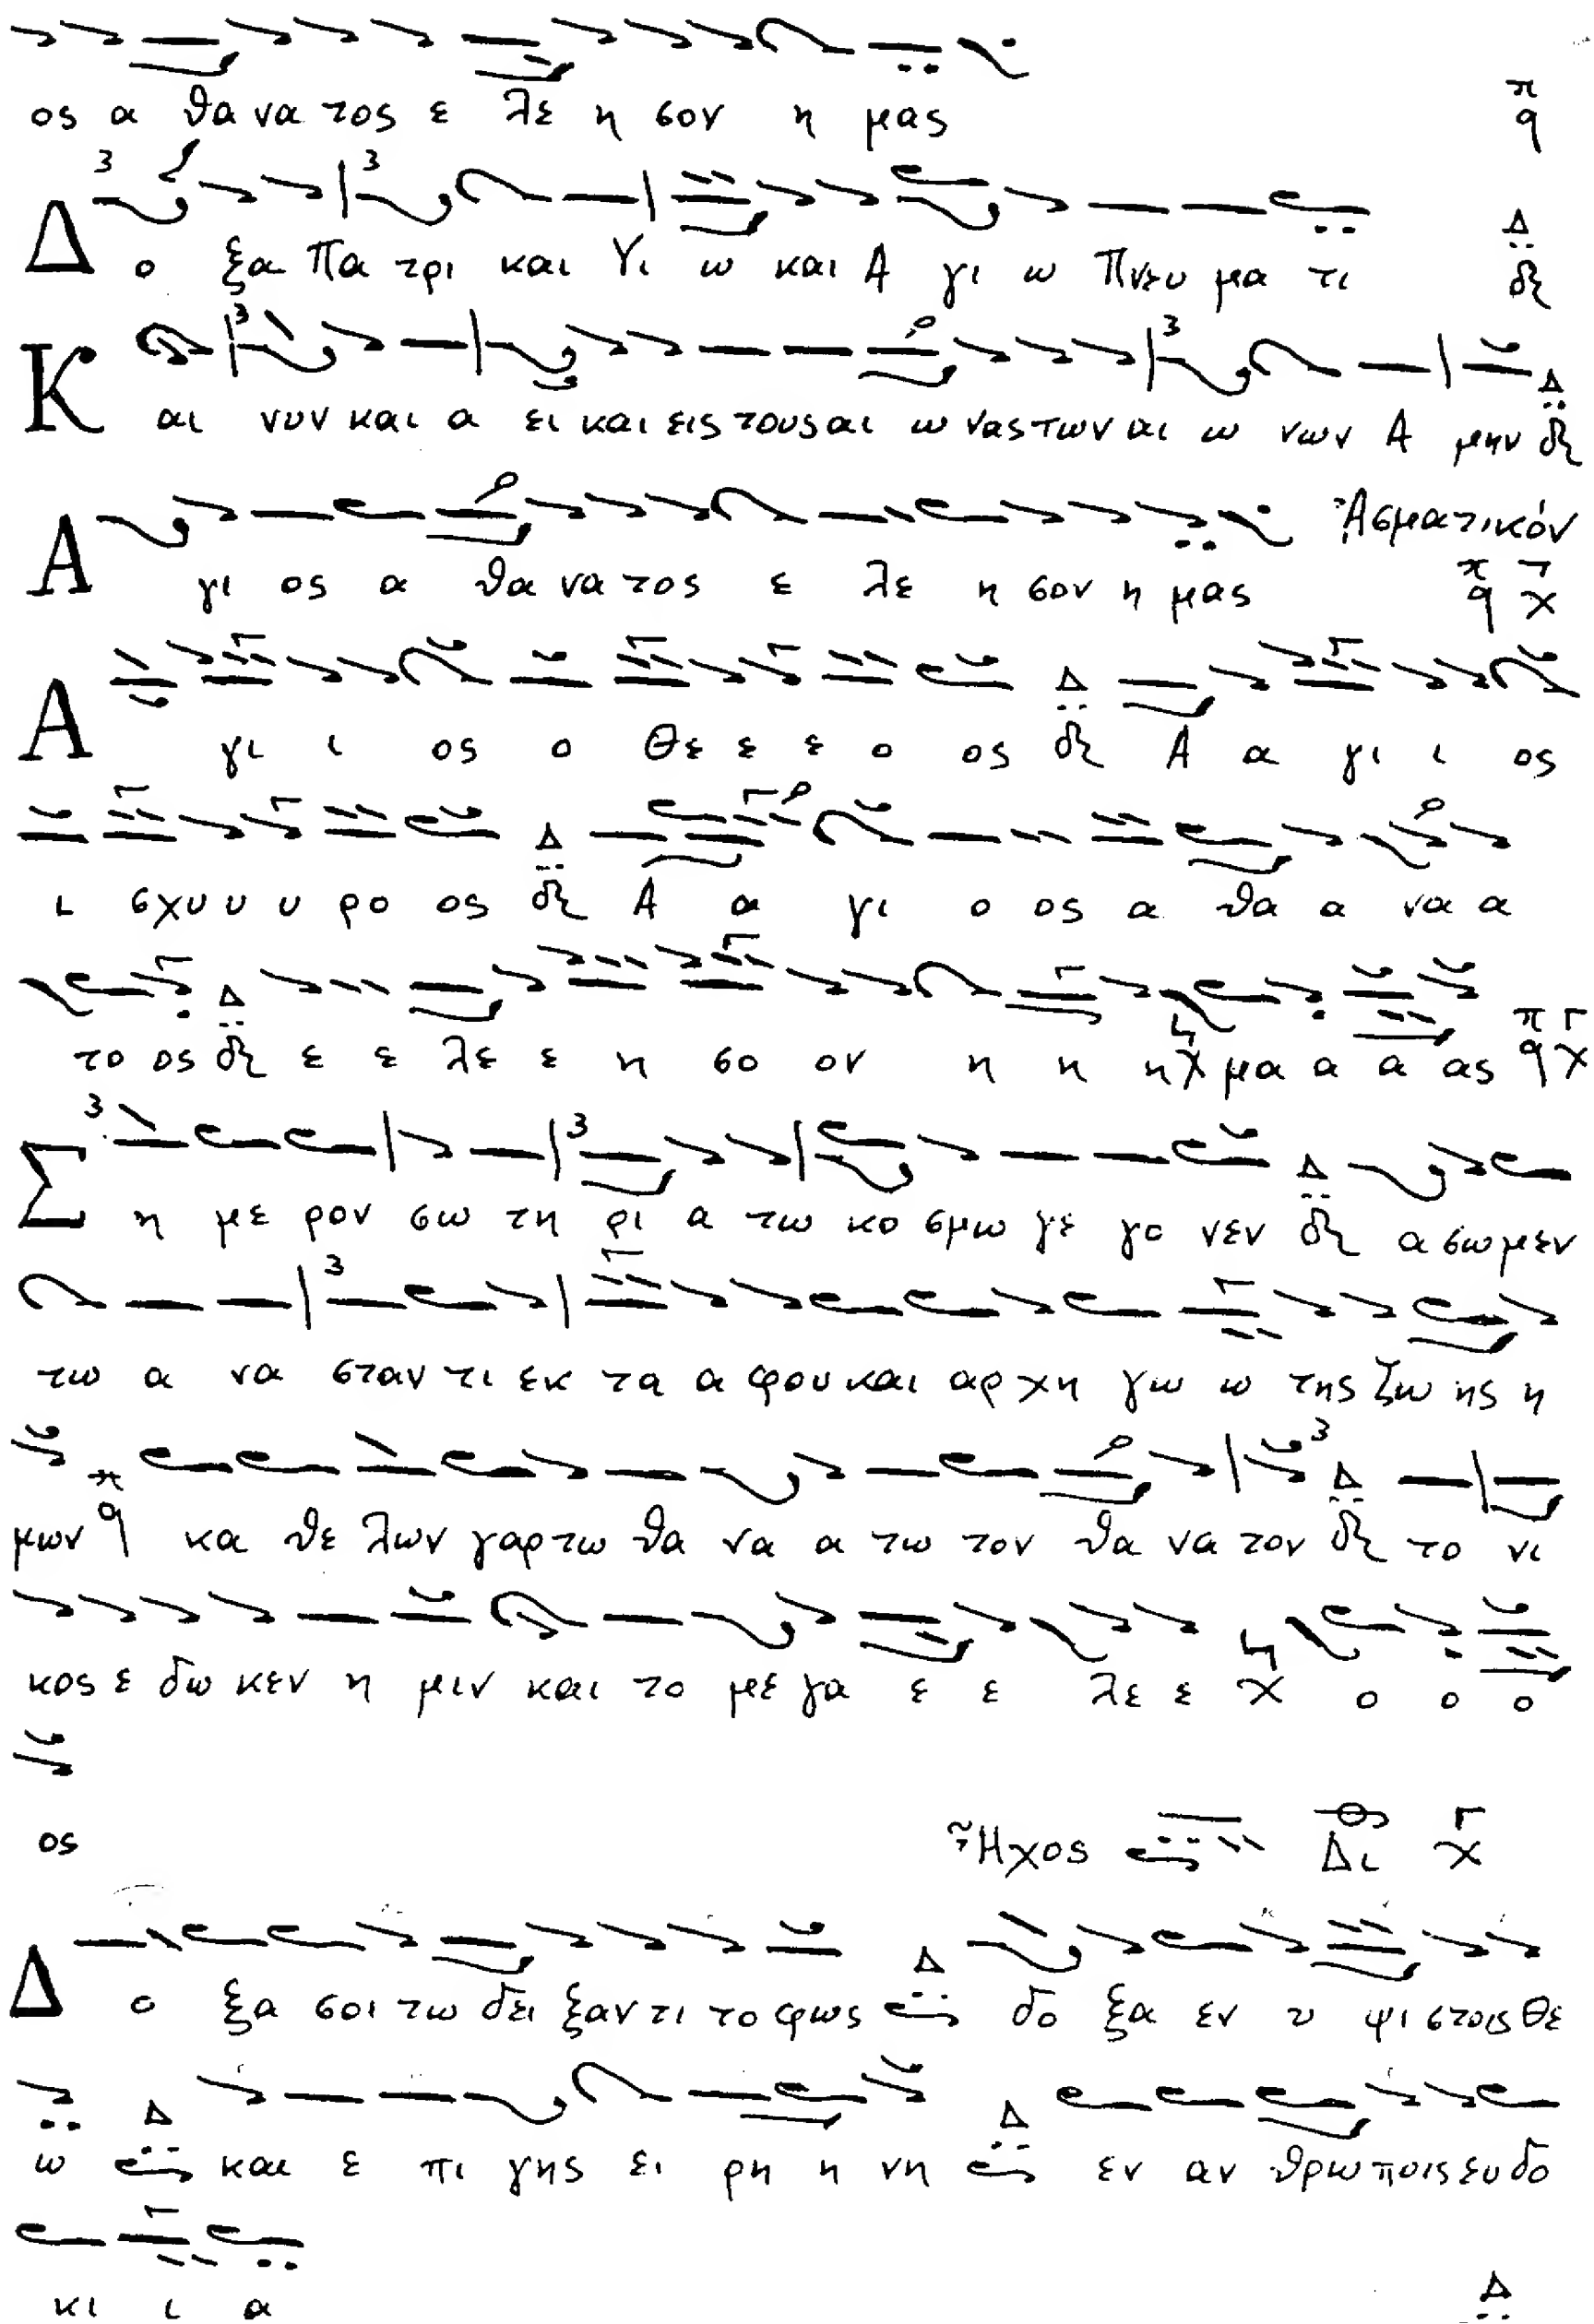 ος α θα να τος ε λε η σον η μας π q
Δ ο ξα Πα τρι και Υι ω και Α γι ω Πνευ μα τι Δ
Κ αι νυν και α ει και εις τους αι ω νας των αι ω νων Α μην Δ
Ἀσματικόν
Α γι ος α θα να τος ε λε η σον η μας π q χ
Α γι ι ος ο Θε ε ε ο ος Δ Α α γι ι ος
ι σχυ υ υ ρο ος Δ Α α γι ο ος α θα α να α
το ος Δ ε ε λε ε η σο ον η η η μα α α ας π q χ
Σ η με ρον σω τη ρι α τω κο σμω γε γο νεν Δ α σω μεν
τω α να σταν τι εκ τα α φου και αρ χη γω ω της ζω ης η
μων π q κα θε λων γαρ τω θα να α τω τον θα να τον Δ το νι
κος ε δω κεν η μιν και το με γα ε ε λε ε ο ο ο
ος Ἦχος Δι χ
Δ ο ξα σοι τω δει ξαν τι το φως Δ δο ξα εν υ ψι στοις Θε
ω Δ και ε πι γης ει ρη η νη Δ εν αν θρω ποις ευ δο
κι ι α Δ